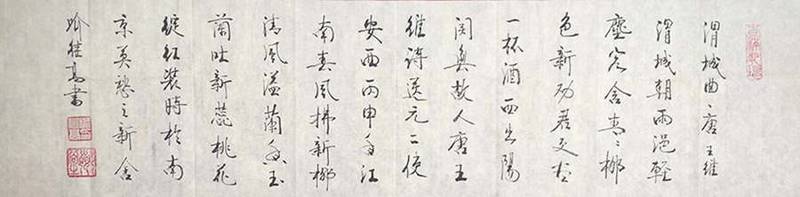 渭城曲 唐 王維
渭城朝雨浥輕
塵客舍青青柳
色新勸君更盡
一杯酒西出陽
關無故人唐王
維詩送元二使
安西丙申年江
南春風拂新柳
清風溢蘭香玉
蘭吐新蕊桃花
綻紅裝時於南
京美憩之新舍
高書